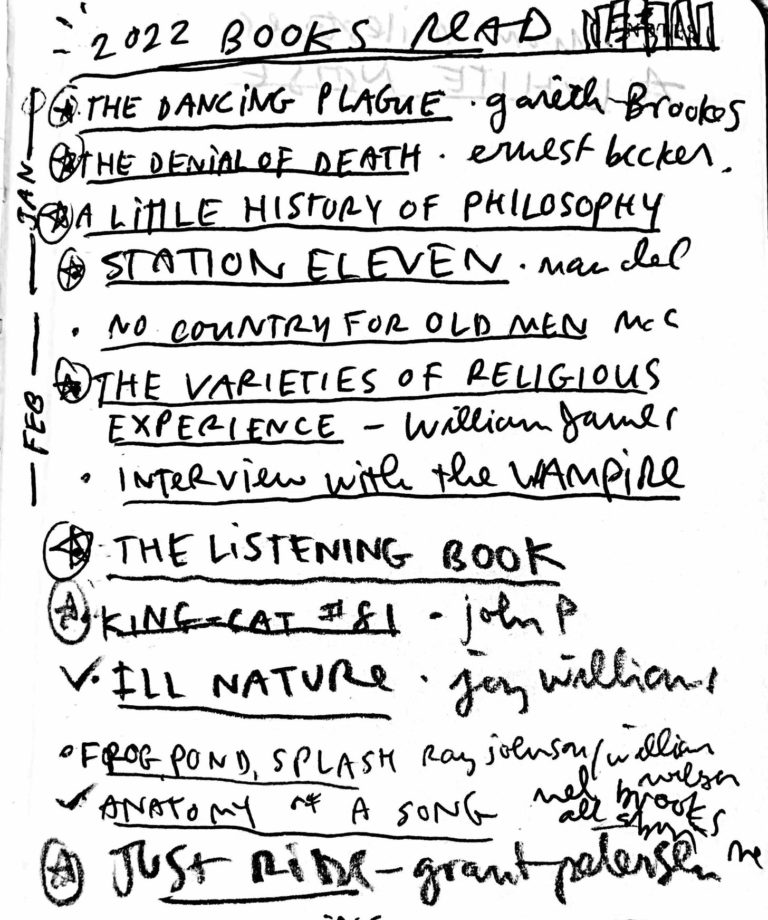 2022 BOOKS READ
JAN
THE DANCING PLAGUE · gareth Brookes
THE DENIAL OF DEATH · ernest becker.
A LITTLE HISTORY OF PHILOSOPHY
STATION ELEVEN · mandel
· NO COUNTRY FOR OLD MEN McC
FEB
THE VARIETIES OF RELIGIOUS
EXPERIENCE – William James
· INTERVIEW with the VAMPIRE
THE LISTENING BOOK
KING-CAT #81 - john P
✓· ILL NATURE · joy williams
• FROG POND SPLASH Ray johnson/william
wilson
✓ ANATOMY of A SONG
mel brooks
all
JUST RIDE – grant petersen